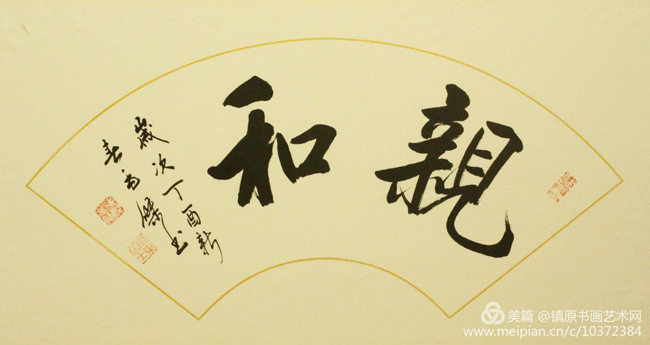 親和
歲次丁酉新
春高书
美篇 @镇原书画艺术网
www.meipian.cn/c/10372384